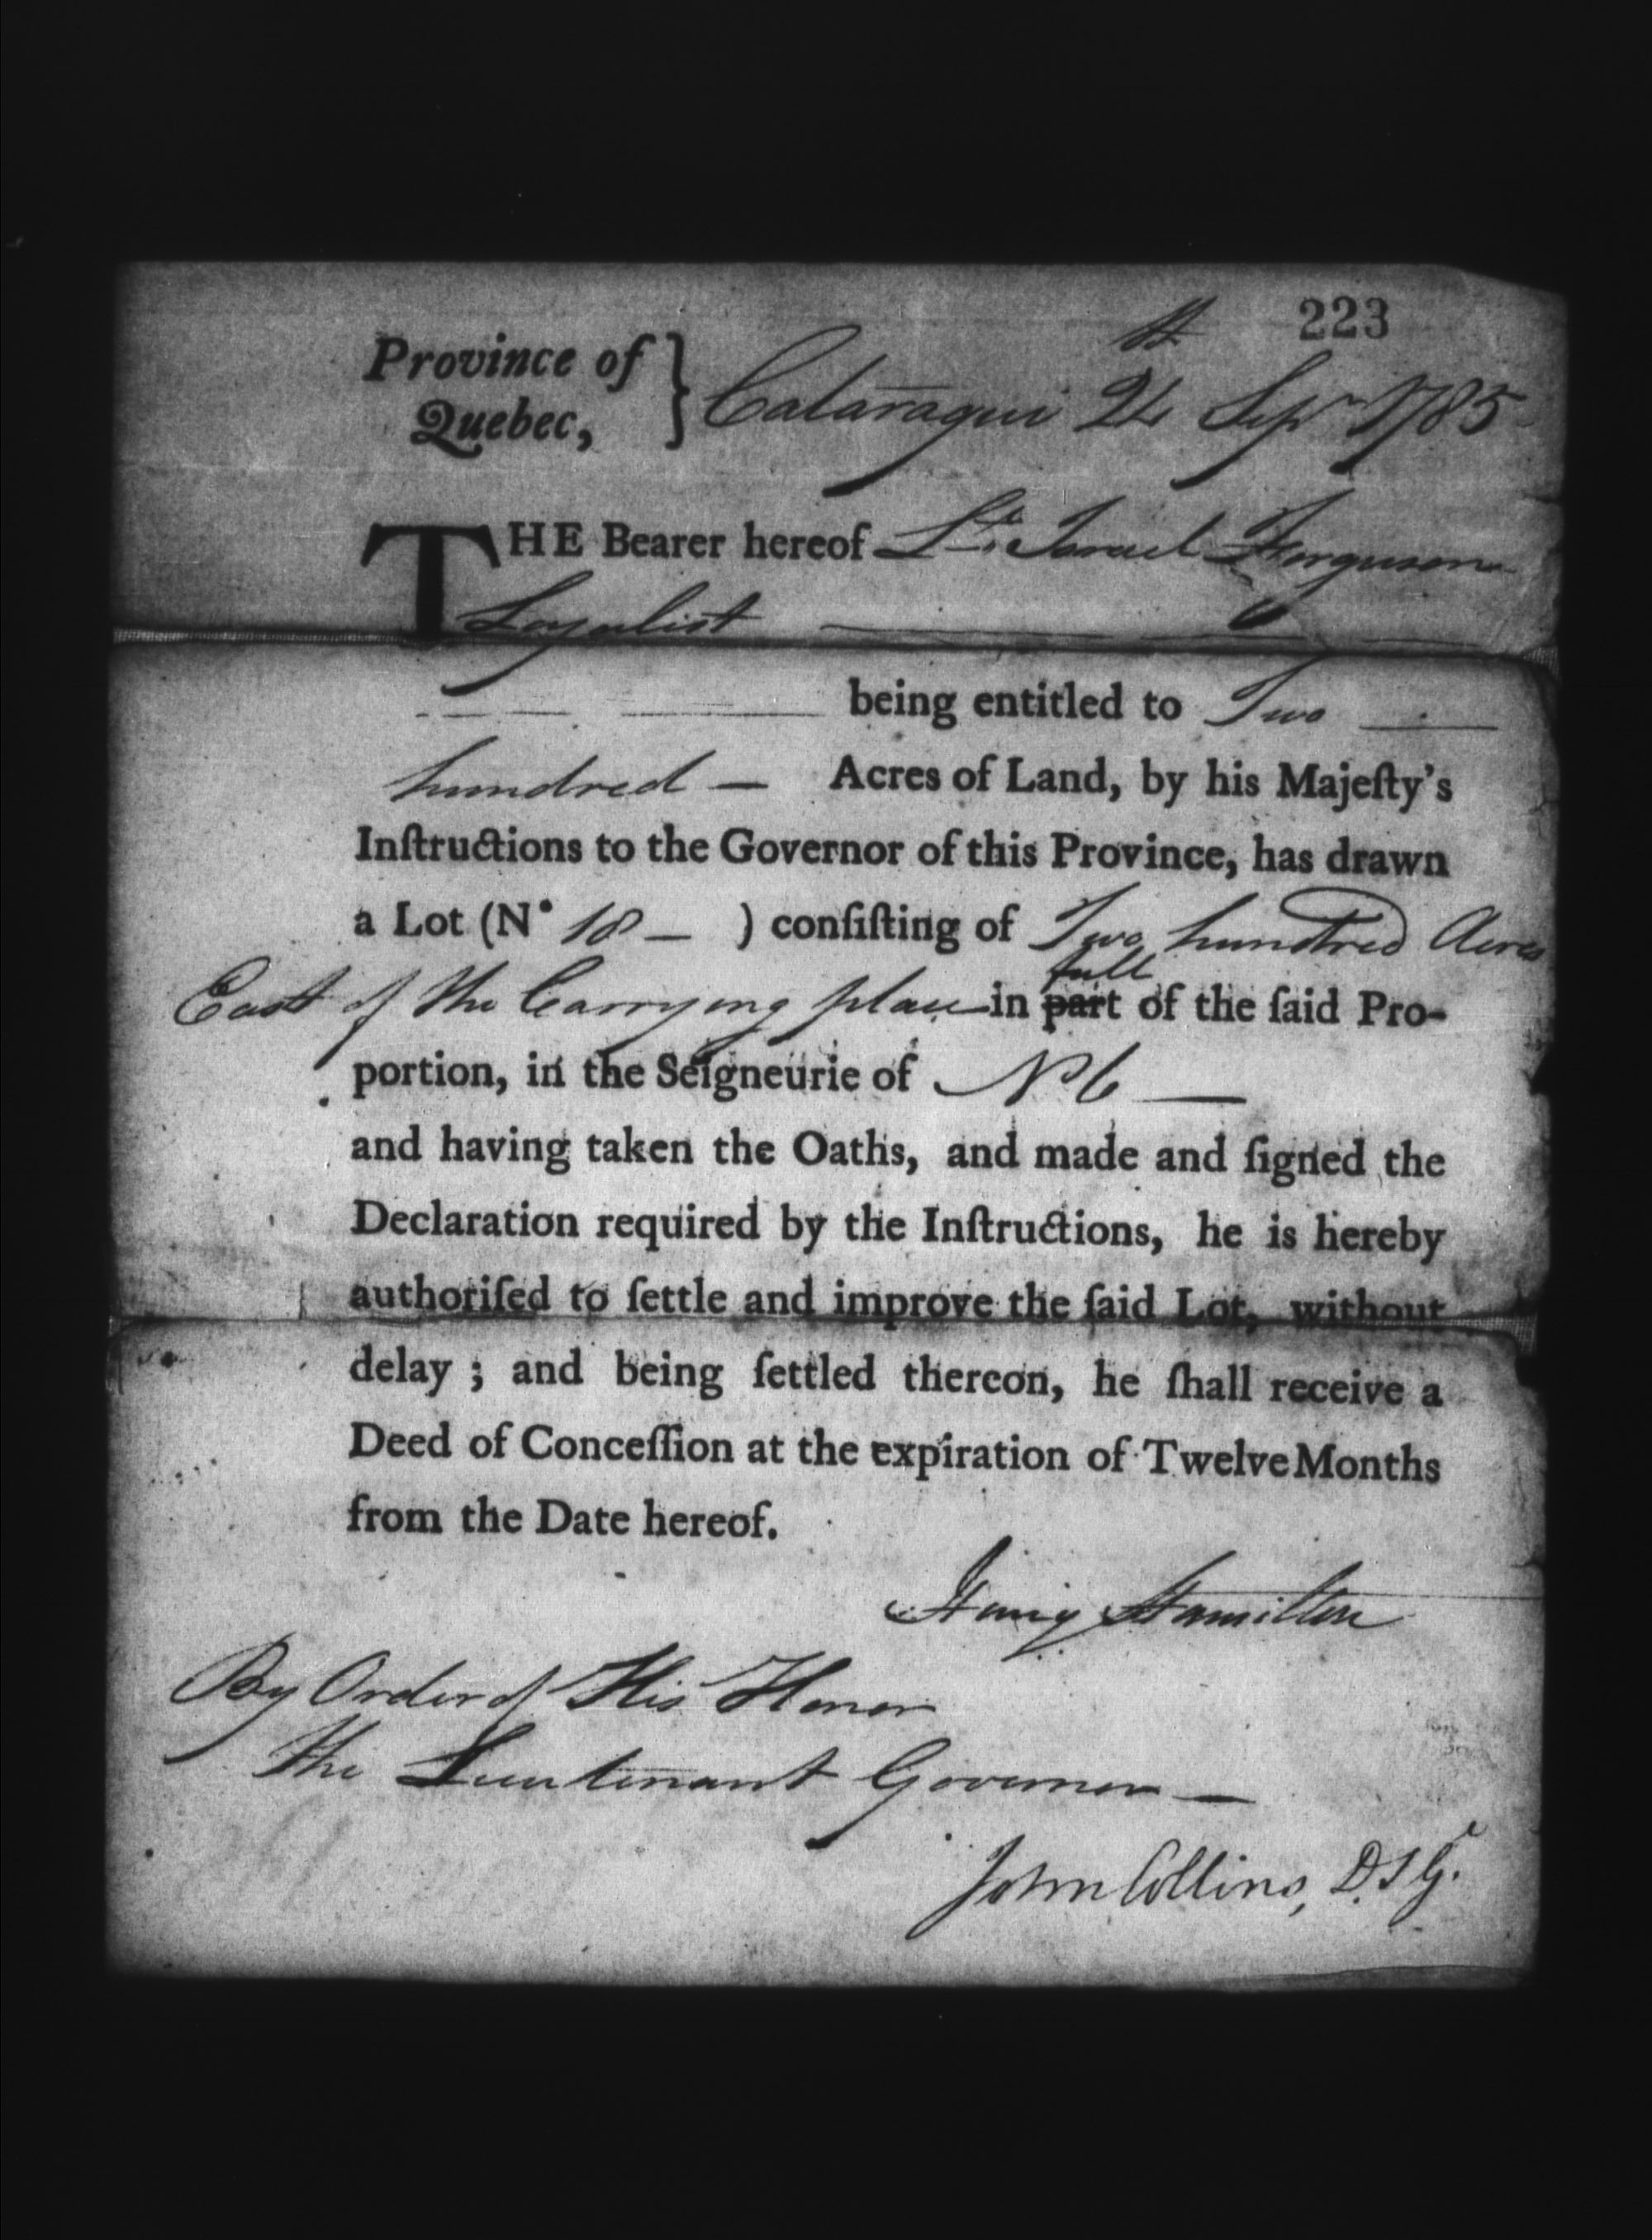 223
Province of Quebec, } Cataraqui 24th Sepr 1785
THE Bearer hereof Lt. Israel Ferguson
Loyalist
being entitled to Two
hundred — Acres of Land, by his Majeſty's
Inſtructions to the Governor of this Province, has drawn
a Lot (N° 18 — ) conſiſting of Two hundred Acres
full
East of the Carrying place in part of the ſaid Pro-
portion, in the Seigneurie of No 6 —
and having taken the Oaths, and made and ſigned the
Declaration required by the Inſtructions, he is hereby
authoriſed to ſettle and improve the ſaid Lot, without
delay ; and being ſettled thereon, he ſhall receive a
Deed of Conceſſion at the expiration of Twelve Months
from the Date hereof.
Henry Hamilton
By Order of His Honor
the Lieutenant Governor —
John Collins, D.S.G.